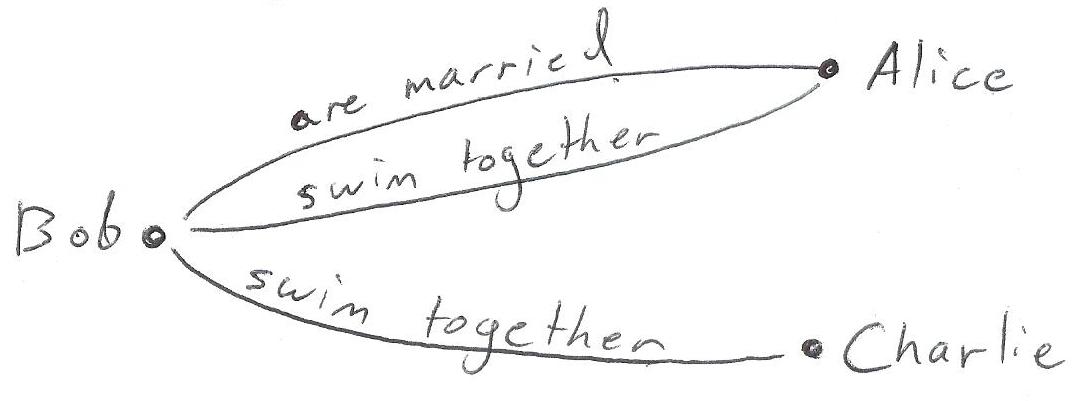 are married
Alice
swim together
Bob
swim together
Charlie